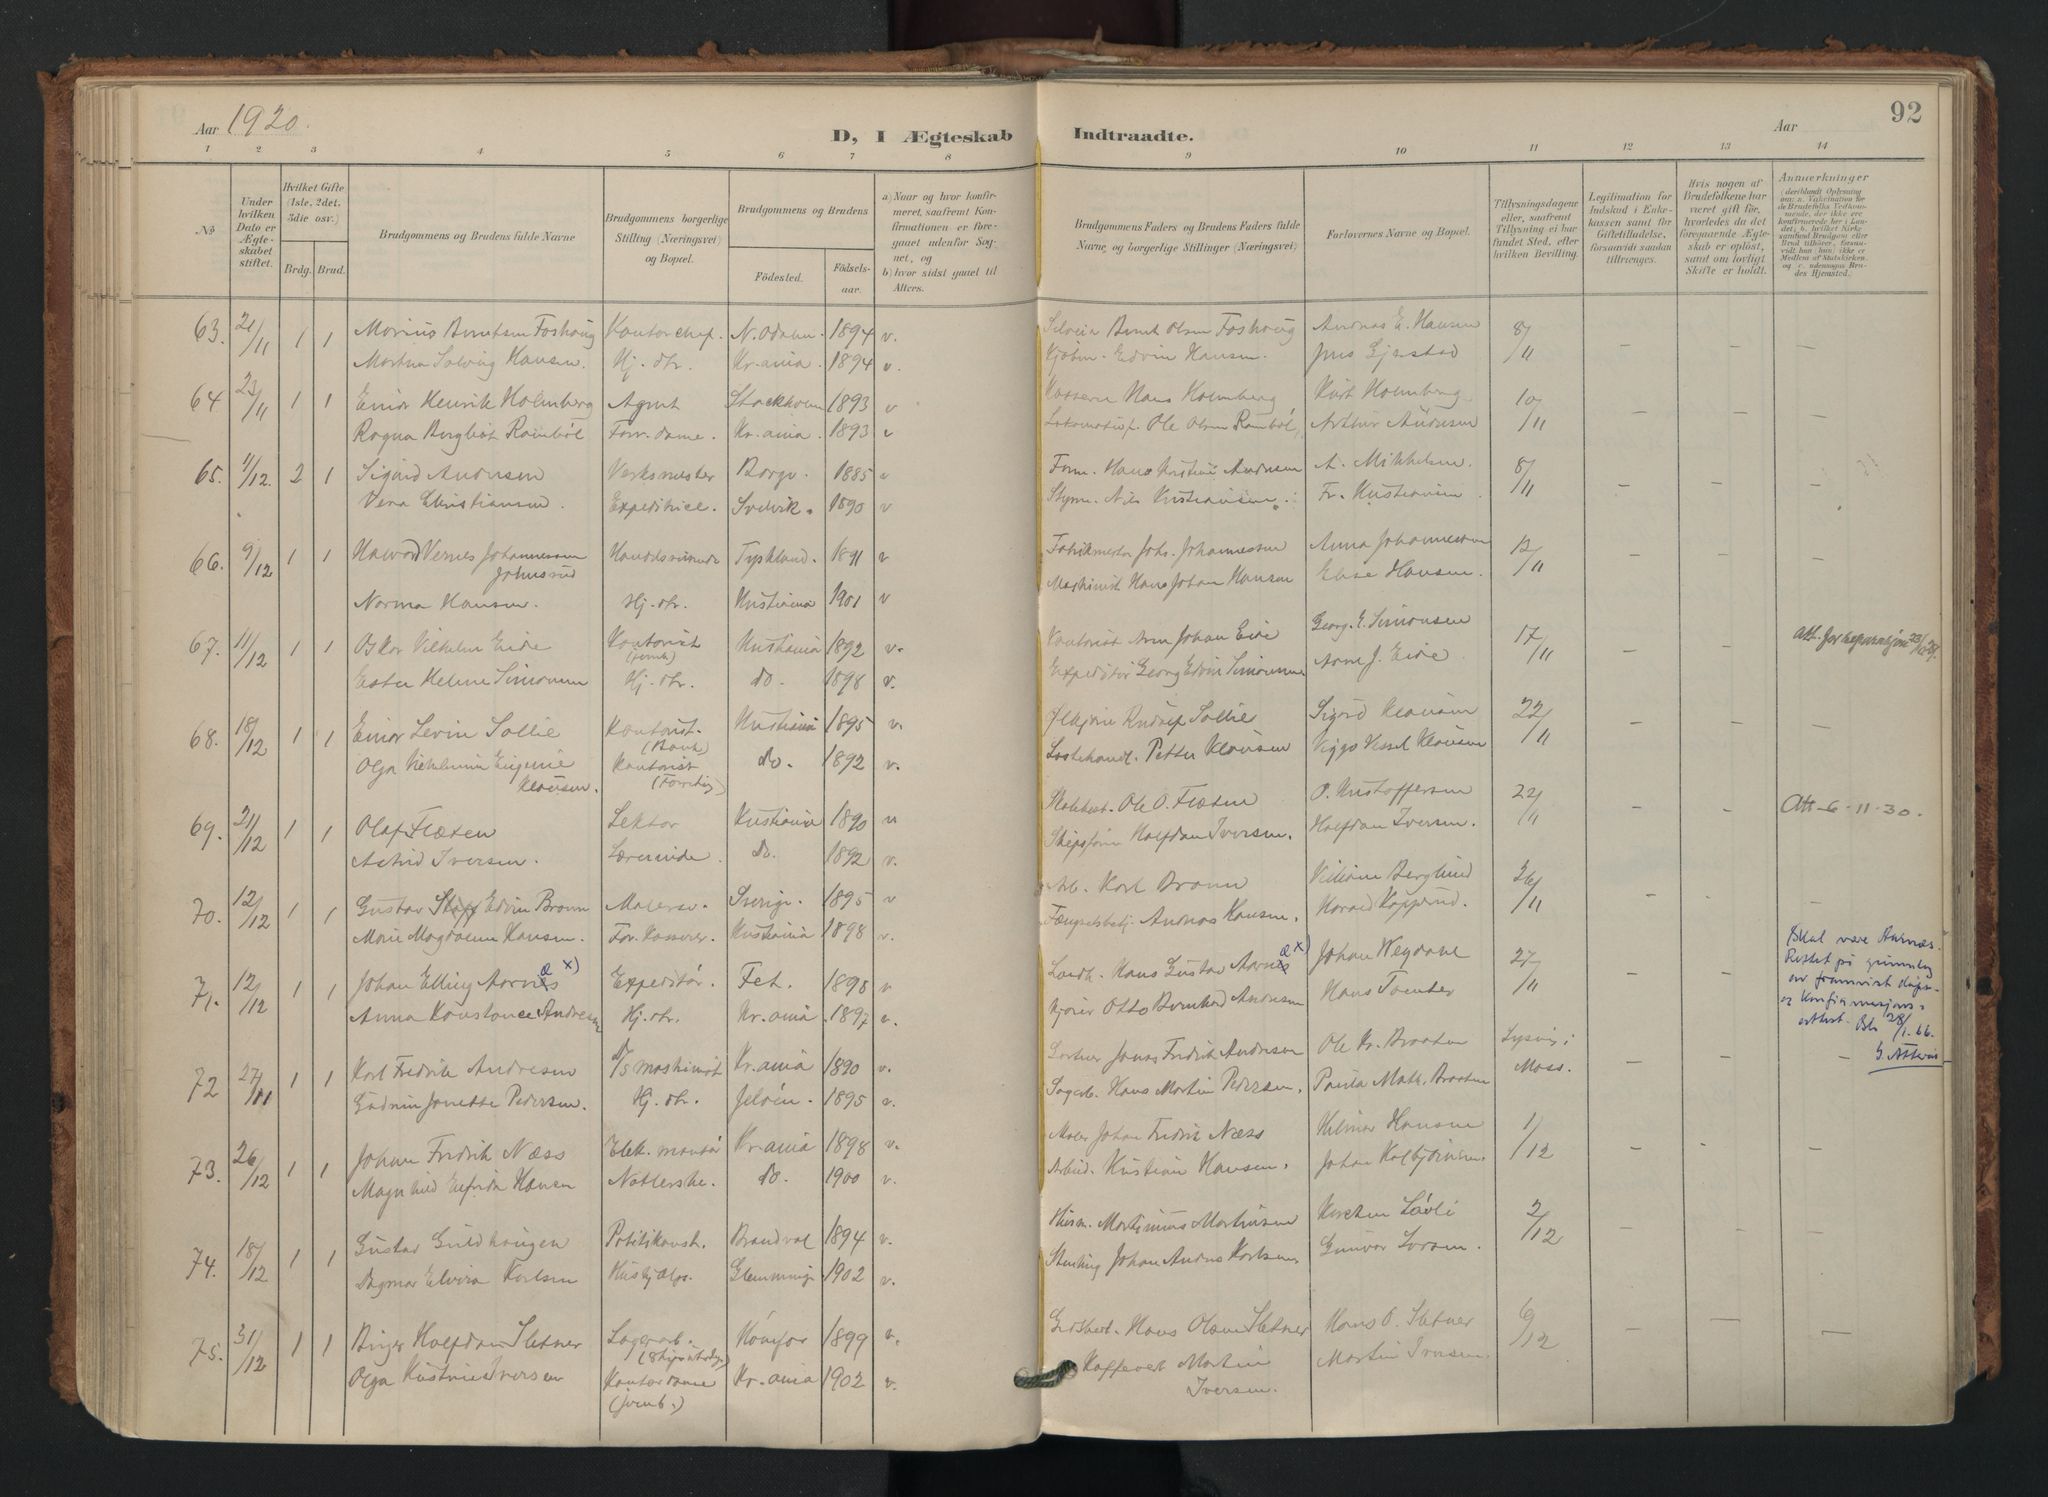 Aar 1920.
D, I Ægteskab Indtraadte.
Aar
92
1 2 3 4 5 6 7 8 9 10 11 12 13 14
No.
Under hvilken Dato er Ægteskabet stiftet.
Hvilket Gifte (1ste, 2det, 3die osv.)
Brdg. Brud.
Brudgommens og Brudens fulde Navne
Brudgommens borgerlige Stilling (Næringsvei) og Bopæl.
Brudgommens og Brudens
Födested.
Födselsaar.
a) Naar og hvor konfirmeret, saafremt Konfirmationen er foregaaet udenfor Sognet, og
b) hvor sidst gaaet til Alters.
Brudgommens Faders og Brudens Faders fulde Navne, og borgerlige Stillinger (Næringsvei)
Forlovernes Navne og Bopæl.
Tillysningsdagene eller, saafremt Tillysning ei har fundet Sted, efter hvilken Bevilling.
Legitimation for Indskud i Enkekassen samt for Giftetilladelse, forsaavidt saadan tiltrænges.
Hvis nogen af Brudefolkene har været gift før, hvorledes da det foregaaende Ægteskab er oplöst, samt om lovligt Skifte er holdt.
Anmærkninger
63. 21/11 1 1 Marius Berntsen Foshaug Kontorchef. N. Odalen. 1894 v. Bernt Olsen Foshaug Andreas E. Hansen 8/11 – – –
Martha Solveig Hansen. Hj. dtr. Kr.ania. 1894 v. Kjøbm. Edvin Hansen. Jens Gjerstad
64 23/11 1 1 Einar Henrik Holmberg Agent Stockholm 1893 v Hans Holmberg Kurt Holmberg 10/11 – – –
Ragna Bergliot Rambøl Forr. dame. Kr.ania. 1893 v Ole Olsen Rambøl, Arthur Andersen
65. 4/12. 2 1 Sigurd Andersen Verksmester Borge. 1885 v Form. Hans Kristian Andersen A. Mikkelsen. 8/11 – – –
Vera Christiansen. Expeditrice. Svelvik. 1890 v Styrm. Nils Kristiansen. Fr. Kristiansen
66. 9/12 1 1 Halvard Vernes Johannessen Johnsrud Handelsreisende Tyskland. 1891 v Fabrikmester Johs. Johannessen Anna Johannessen 12/11 – – –
Norma Hansen. Hj. dtr. Kristiania 1901 v Maskinist Hans Johan Hansen Elise Hansen.
67. 11/12 1 1 Oskar Vilhelm Eide Kontorist Kristiania 1892 v. Kontorist Arne Johan Eide Georg. E. Simonsen 17/11 – – Att. for separasjon
Ester Helene Simonsen Hj. dtr. do. 1898 v. Expeditør Georg Edvin Simonsen Arne J. Eide
68. 18/12 1 1 Einar Levin Sollie Kontorist. (Bank) Kristiania 1895 v. Rudolf Sollie Sigurd Klausen 22/11 – – –
Olga Vilhelmine Eugenie Klausen. Kontorist (Forretng) do. 1892 v. Petter Klausen Viggo Vessel Klausen
69. 21/12 1 1 Olaf Flaten Lektor Kristiania 1890 v Ole O. Flaten O. Kristoffersen 22/11 – – Att. 6-11-30.
Astrid Iversen. Lærerinde. do. 1892 v. Skipsfører Halfdan Iversen. Halfdan Iversen.
70. 12/12 1 1 Gustav Edvin Braum Malersv. Sverige. 1895 v Arb. Karl Braum Berglund 26/11 – – –
Marie Magdalene Hansen. For. Kasserer. Kristiania 1898 v. Andreas Hansen. Harald Kopperud.
71. 12/12 1 1 Johan Elling Aarnes æ x) Expeditør. Fet. 1898 v Landh. Hans Gustav Aarnes æ x) Johan Wegdane 27/11 – – Skal være Aarnæs. Rettet på grunnlag av framvist dåps- og konfirmasjonsattest. 28/1.66.
Anna Konstance Andresen Hj. dtr. Kr.ania. 1897 v. Kjører Otto Bernhard Andresen Hans Toenter
72 27/11 1 1 Karl Fredrik Andresen D/S maskinist Kr.ania 1890 v. Gartner Jonas Fredrik Andresen Ole Kr. Braaten Lysning i Moss. – – –
Gudrun Janette Pedersen. Hj. dtr. Jeløen. 1895 v. Sagarb. Hans Martin Pedersen. Paula Math. Braaten
73. 26/12 1 1 Johan Fredrik Næss Elek. montør Kr.ania 1898 v. Maler Johan Fredrik Næss Hilmar Hansen 1/12 – – –
Magnhild Elfrida Hansen do. 1900 v. Arbeid. Kristian Hansen. Johan Kolbjørnsen.
74. 18/12 1 1 Gustav Guldhaugen Politikonst. Brandval 1894 v. Husm. Martinius Martinsen Karsten Løvli 2/12 – – –
Dagmar Elvira Karlsen Hushjælp. Glemminge 1902 v. Stenhug. Johan Andreas Karlsen. Gunvor
75. 31/12 1 1 Birger Halfdan Sletner Lagerarb. Hønefos 1899 v. Hans Olsen Sletner Hans O. Sletner 6/12 – – –
Olga Kristine Iversen Kontordame (jernb.) Kr.ania 1902 v. Martin Iversen. Martin Iversen.